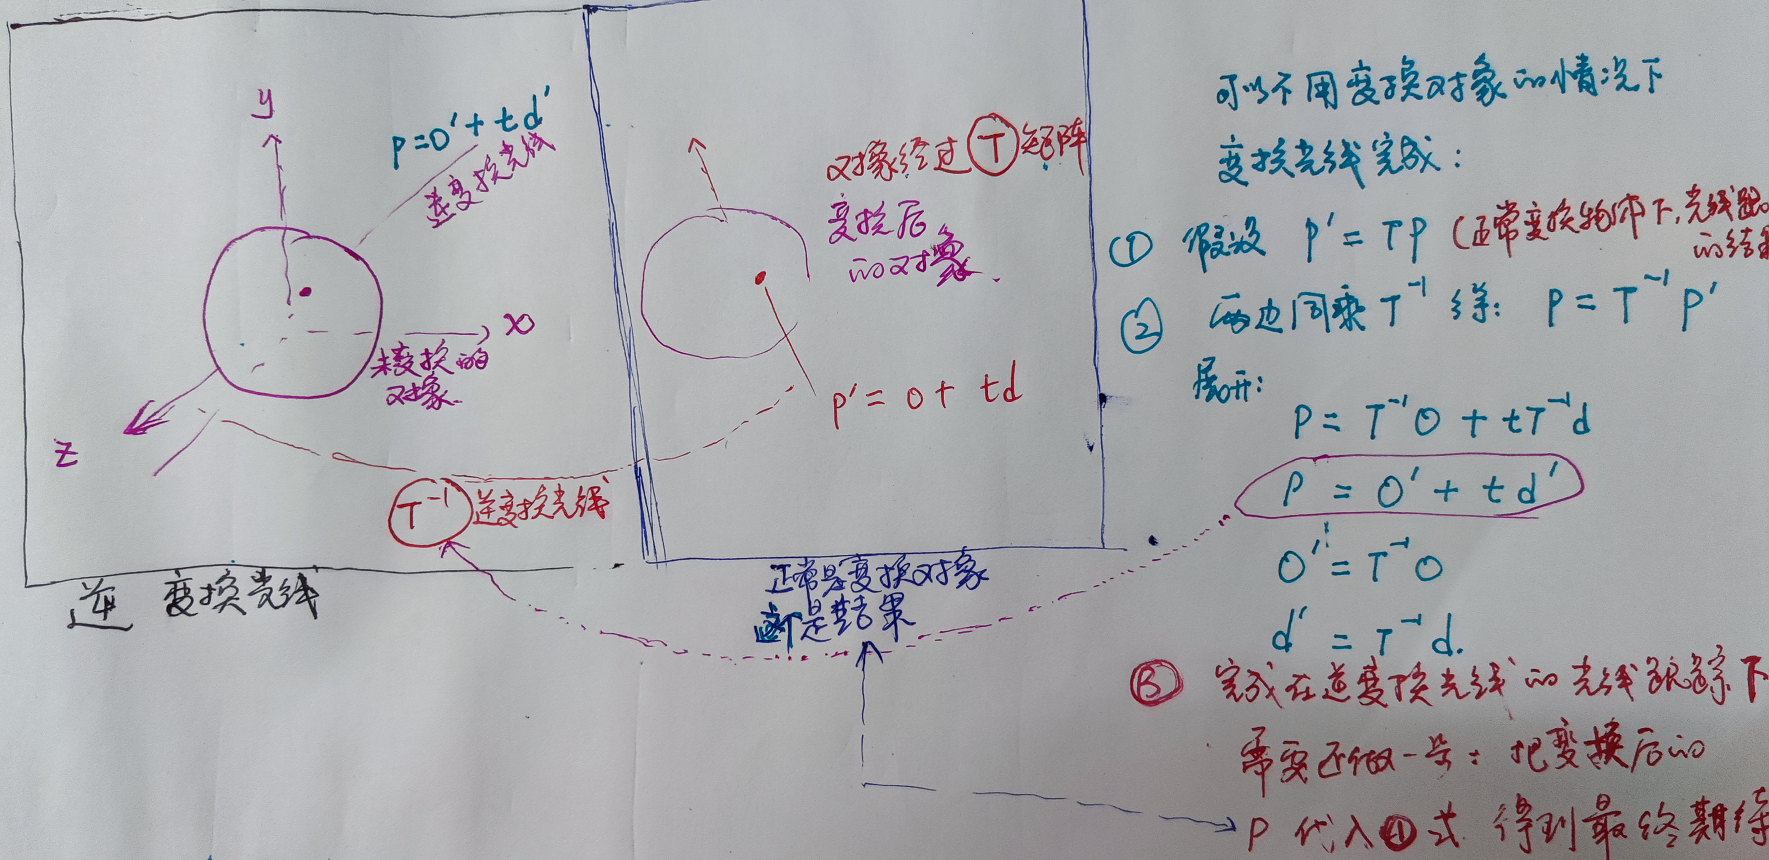 y
p=o'+td'
逆变换光线
x
未变换的
对象.
z
T⁻¹ 逆变换光线
逆 变换光线
对象经过 T 矩阵
变换后
的对象.
p'= o + td
正常是变换对象
这是结果
可以不用变换对象的情况下
变换光线完成:
① 假设 p' = Tp (正常变换物体下,光线跟
的结果
② 两边同乘 T⁻¹ 得: p = T⁻¹ p'
展开:
p = T⁻¹O + tT⁻¹d
p = O' + td'
O' = T⁻¹O
d' = T⁻¹d.
③ 完成在逆变换光线的光线跟踪下
需要还做一步: 把变换后的
p 代入①式 得到最终期待